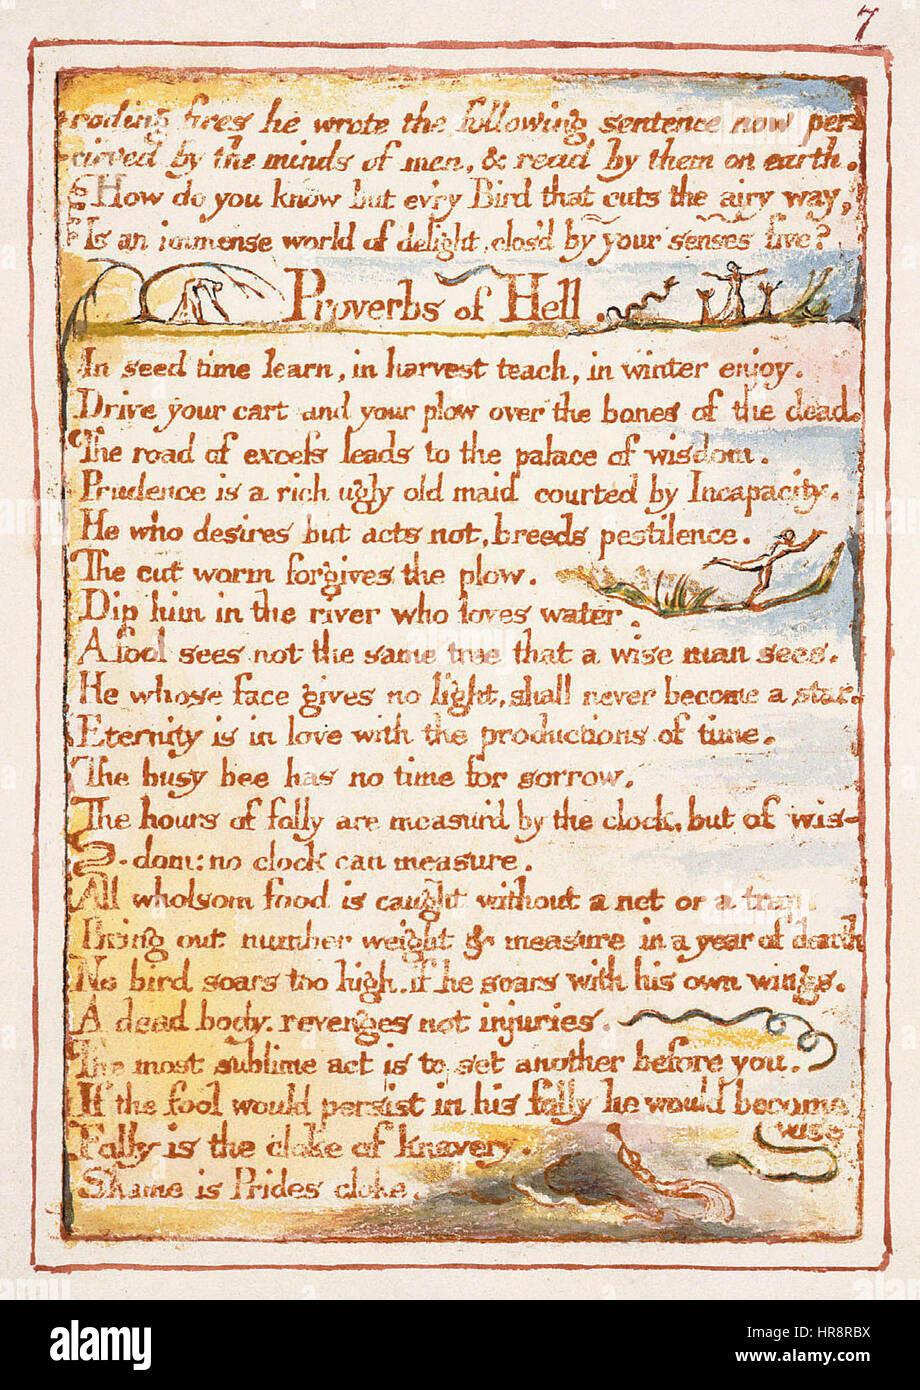 7
-roding fires he wrote the following sentence now per-
-cieved by the minds of men, & read by them on earth.
How do you know but ev'ry Bird that cuts the airy way,
Is an immense world of delight, clos'd by your senses five?
Proverbs of Hell.
In seed time learn, in harvest teach, in winter enjoy.
Drive your cart and your plow over the bones of the dead.
The road of excess leads to the palace of wisdom.
Prudence is a rich ugly old maid courted by Incapacity.
He who desires but acts not, breeds pestilence.
The cut worm forgives the plow.
Dip him in the river who loves water.
A fool sees not the same tree that a wise man sees.
He whose face gives no light, shall never become a star.
Eternity is in love with the productions of time.
The busy bee has no time for sorrow.
The hours of folly are measur'd by the clock, but of wis-
-dom: no clock can measure.
All wholsom food is caught without a net or a trap.
Bring out number weight & measure in a year of dearth
No bird soars too high. if he soars with his own wings.
A dead body. revenges not injuries.
The most sublime act is to set another before you.
If the fool would persist in his folly he would become
wise
Folly is the cloke of knavery.
Shame is Prides cloke.
alamy
Image ID: HR8RBX
www.alamy.com